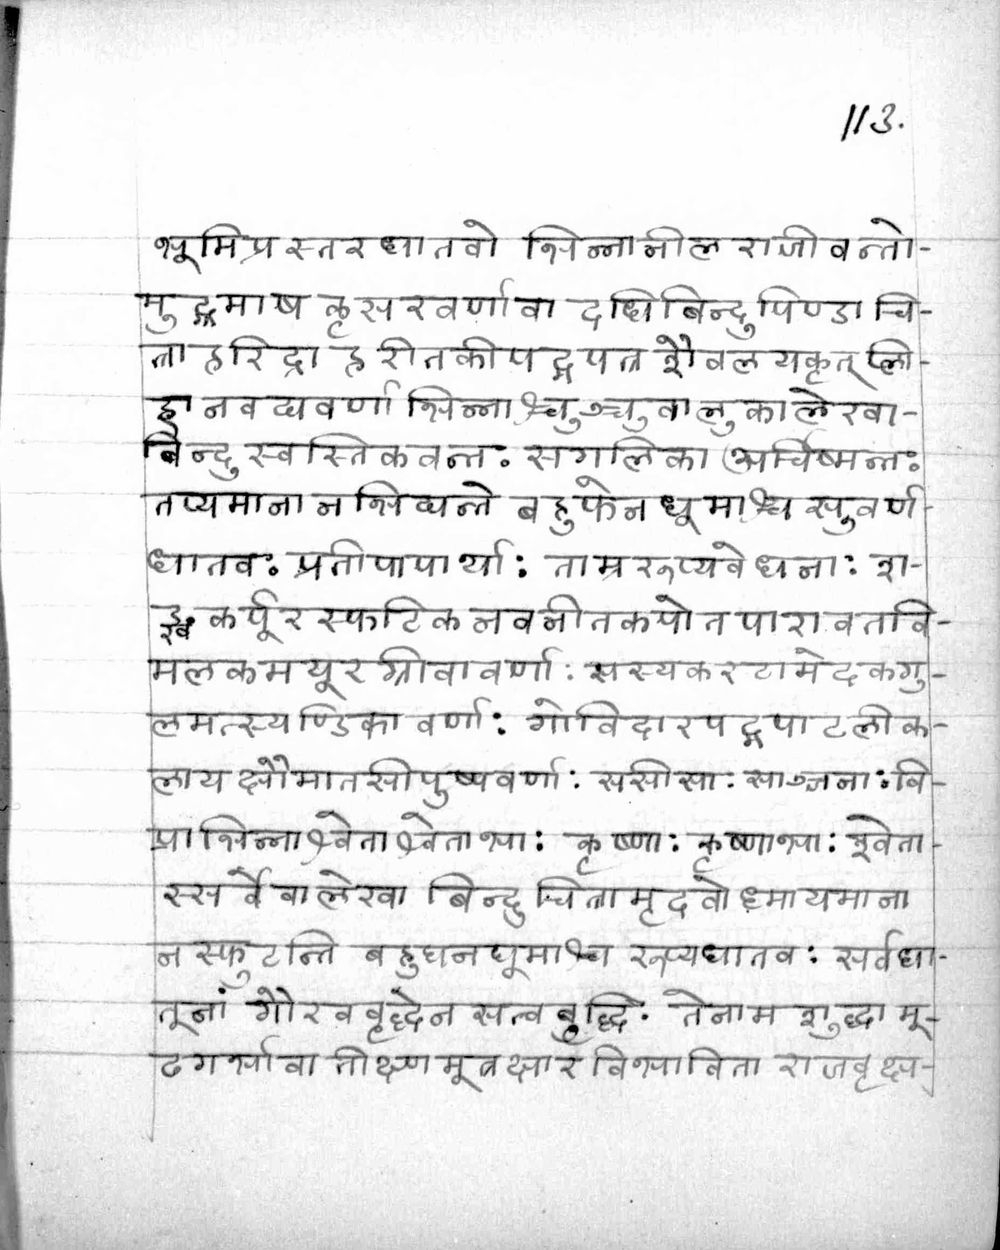 113.
भूमिप्रस्तरधातवो भिन्नानील राजीवन्तो-
मुद्गमाष कृसरवर्णावा दधिबिन्दुपिण्डाचि-
त्राहरिद्रा हरीतकीपद्मपत्र शैवलयकृत्प्ली-
हानवद्यवर्णा भिन्नाश्चुञ्चुवालुकालेखा-
बिन्दुस्वस्तिकवन्तः सगलिका अर्चिष्मन्तः
तप्यमानानभिद्यन्ते बहुफेनधूमाश्च सुवर्ण-
धातवः प्रतीपापार्थाः ताम्ररूप्यवेधनाः श-
ङ्ख कर्पूरस्फटिकनवनीतकपोतपारावतवि-
मलकमयूरग्रीवावर्णाः सस्यकरटामेदकगु-
लमत्स्यण्डिकावर्णाः गोविदारपद्मपाटलीक-
लायक्षौमातसीपुष्पवर्णाः ससीसाः साञ्जनाः वि-
प्राभिन्नाश्वेताश्वेताभाः कृष्णाः कृष्णाभाः श्वेता-
स्सर्वे वालेखा बिन्दुचित्रामृदवोध्मायमाना
न स्फुटन्ति बहुधनधूमाश्च रूप्यधातवः सर्वधा-
तूनां गौरववृद्धेन सत्व वृद्धिः तेनाम शुद्धामू-
ढगर्भावा तीक्ष्णमूत्रक्षारविभाविता राजवृक्ष-